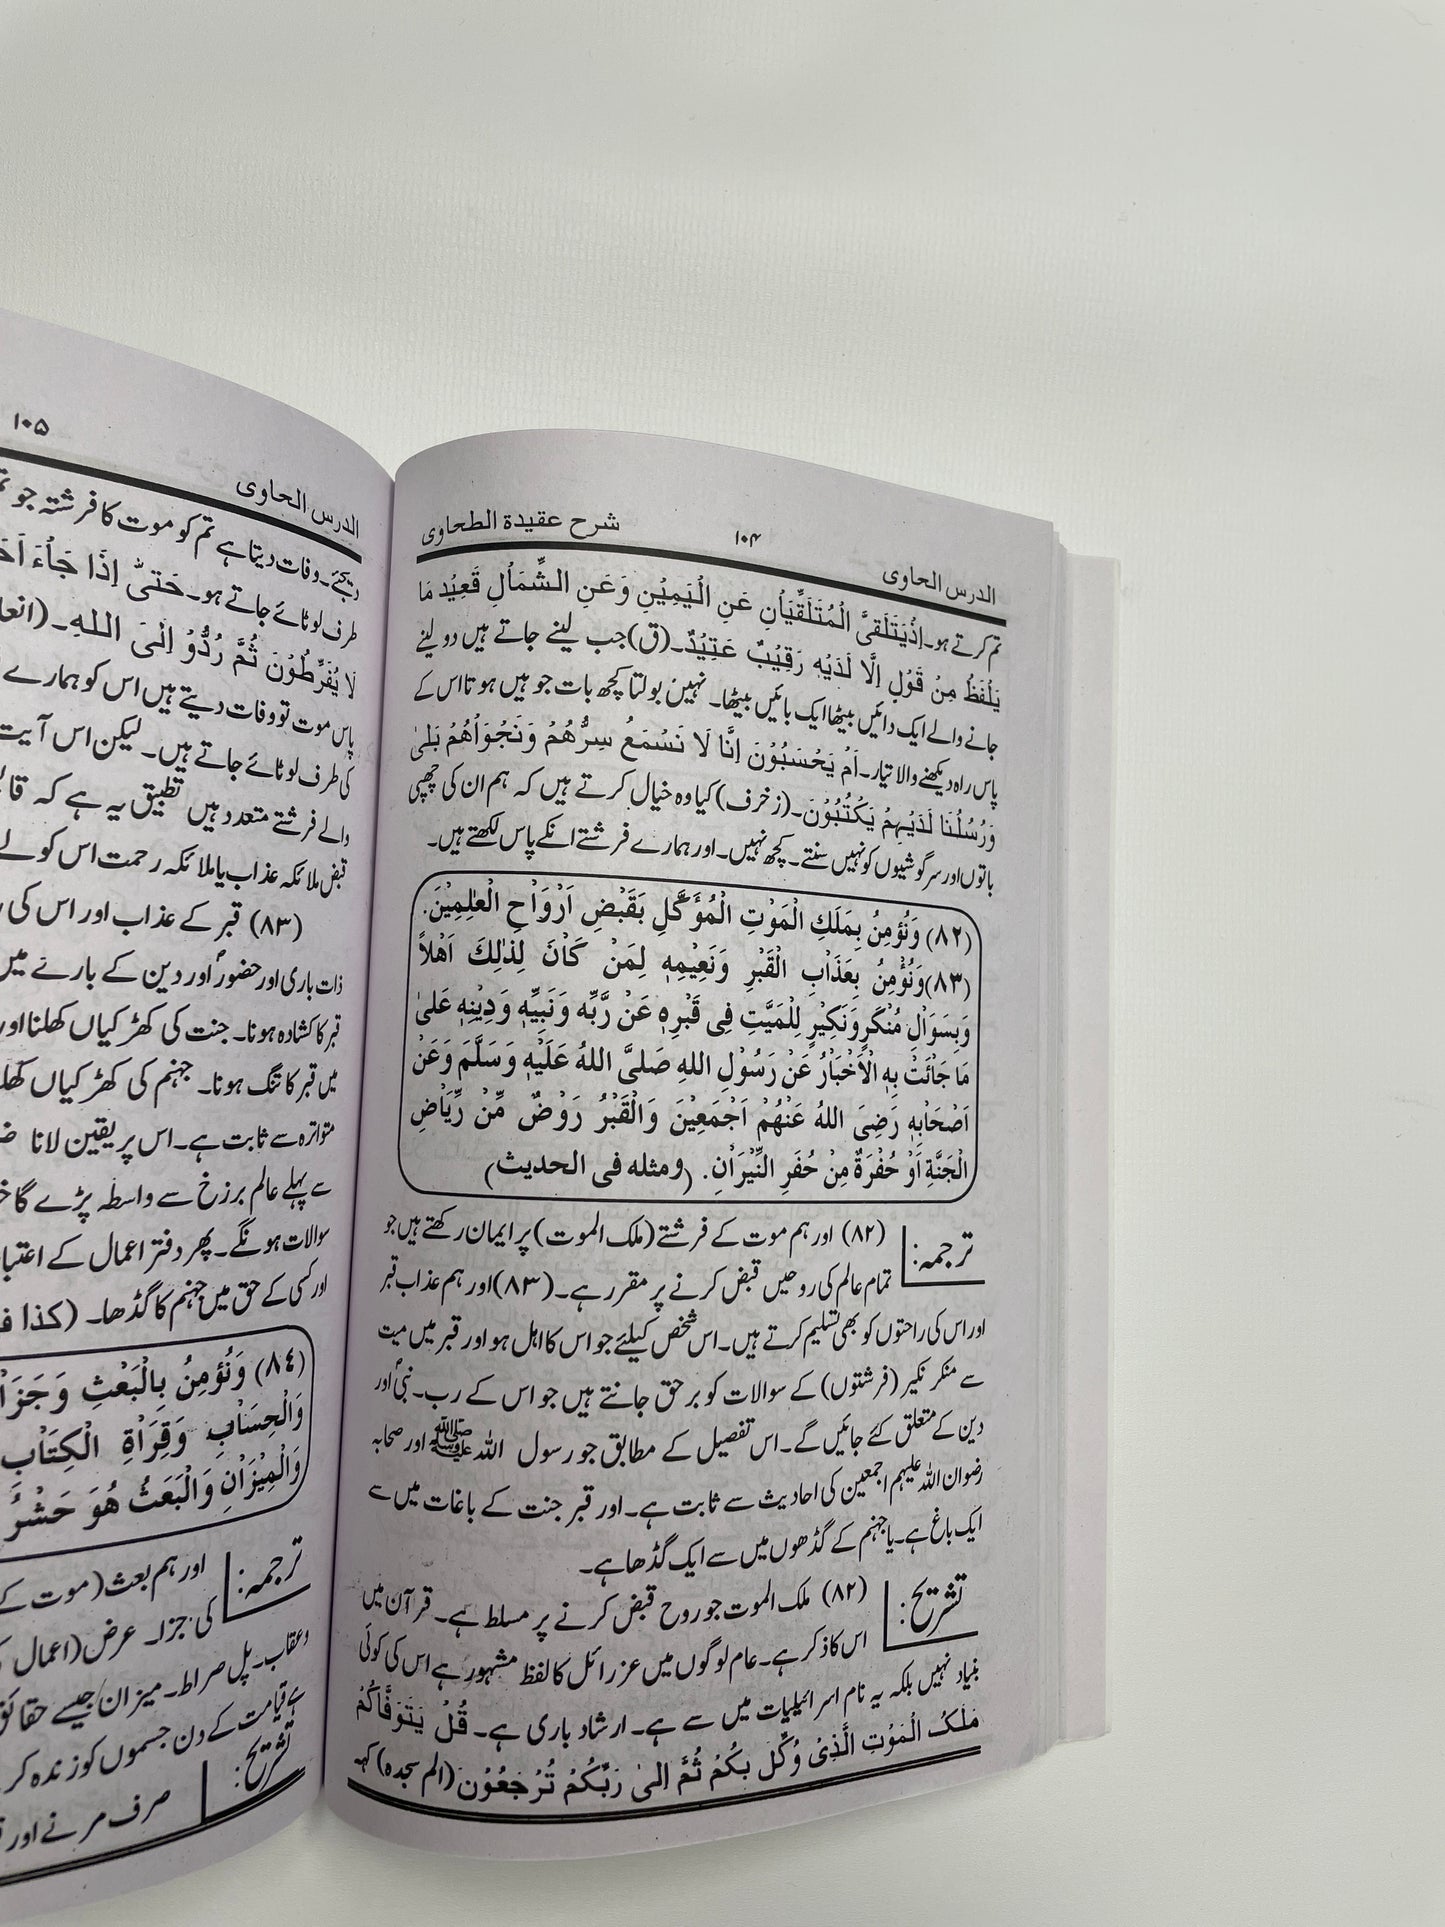 الدرس الحاوی ۱۰۴ شرح عقیدۃ الطحاوی
تم کرتے ہو۔ اِذْیَتَلَقیَّ الْمُتَلَقِّیَاْنِ عَنِ الْیَمِیْنِ وَعَنِ الشِّمَاْلِ قَعِیْد مَا
یَلْفَظُ مِنْ قَوْلٍ اِلَّا لَدَیْہِ رَقِیْبٌ عَتِیْدٌ۔(ق) جب لینے جاتے ہیں دو لینے
جانے والے ایک دائیں بیٹھا ایک بائیں بیٹھا۔ نہیں بولتا کچھ بات جو ہیں ہوتا اس کے
پاس راہ دیکھنے والا تیار۔ اَمْ یَحْسَبُوْنَ اِنَّا لَا نَسْمَعُ سِرُّھُمْ وَنَجْوَاْھُمْ بَلیٰ
وَرُسُلُنَا لَدَیْہِمْ یَکْتُبُوْنَ۔(زخرف) کیا وہ خیال کرتے ہیں کہ ہم ان کی چھپی
باتوں اور سرگوشیوں کو نہیں سنتے۔ کچھ نہیں۔ اور ہمارے فرشتے انکے پاس لکھتے ہیں۔
(۸۲) وَنُؤمِنُ بِمَلَکِ الْمَوْتِ الْمُؤَکَّلِ بَقَبْضِ اَرْوَاْحِ الْعٰلِمِیْنَ.
(۸۳)وَنُؤْمِنُ بِعَذَاْبِ الْقَبْرِ وَنَعِیْمِہٖ لِمَنْ کَاْنَ لِذٰلِکَ اَھْلاً
وَبِسَوَاْلِ مُنْکَرٍوَنَکِیْرٍ لِلْمَیِّتِ فِی قَبْرِہٖ عَنْ رَبِّہٖ وَنَبِیِّہٖ وَدِیْنِہٖ عَلیٰ
مَا جَائَتْ بِہِ الْاَخْبَاْرُ عَنْ رَسُوْلِ اللہِ صَلیَّ اللہُ عَلَیْہِ وَسَلَّمَ وَعَنْ
اَصْحَاْبِہٖ رَضِیَ اللہُ عَنْھُمْ اَجْمَعِیْنَ وَالْقَبْرُ رَوْضٌ مِّنْ رِّیَاْضِ
الْجَنَّةِ اَوْ حُفْرَةٌ مِنْ حُفَرِ النِّیْرَاْنِ. (ومثلہ فی الحدیث)
ترجمہ: (۸۲) اور ہم موت کے فرشتے (ملک الموت) پر ایمان رکھتے ہیں جو
تمام عالم کی روحیں قبض کرنے پر مقرر ہے۔(۸۳)اور ہم عذاب قبر
اور اس کی راحتوں کو بھی تسلیم کرتے ہیں۔ اس شخص کیلئے جو اس کا اہل ہو اور قبر میں میت
سے منکر نکیر (فرشتوں) کے سوالات کو برحق جانتے ہیں جو اس کے رب۔ نبیؐ اور
دین کے متعلق کئے جائیں گے۔ اس تفصیل کے مطابق جو رسول اللہ ﷺ اور صحابہ
رضوان اللہ علیہم اجمعین کی احادیث سے ثابت ہے۔ اور قبر جنت کے باغات میں سے
ایک باغ ہے۔ یا جہنم کے گڈھوں میں سے ایک گڈھا ہے۔
تشریح: (۸۲) ملک الموت جو روح قبض کرنے پر مسلط ہے۔ قرآن میں
اس کا ذکر ہے۔ عام لوگوں میں عزرائل کا لفظ مشہور ہے اس کی کوئی
بنیاد نہیں بلکہ یہ نام اسرائیلیات میں سے ہے۔ ارشاد باری ہے۔ قُلْ یَتَوَفَّاکُمْ
مَلَکُ الْمَوْتِ الَّذِیْ وُکِّل بِکُمْ ثُمَّ اِلیٰ رَبِّکُمْ تُرْجَعُوْن (الم سجدہ) کہہ
۱۰۵ الدرس الحاوی
دیجئے۔ وفات دیتا ہے تم کو موت کا فرشتہ جو
طرف لوٹائے جاتے ہو۔ حَتیّٰ اِذَا جَاْءَ
لَا یُفَرِّطُوْنَ ثُمَّ رُدُّوْ اِلیَ اللہِ۔
پاس موت تو وفات دیتے ہیں اس کو ہمارے
کی طرف لوٹائے جاتے ہیں۔ لیکن اس آیت
والے فرشتے متعدد ہیں تطبیق یہ ہے کہ
قبض ملائکہ عذاب یا ملائکہ رحمت اس کو لے
(۸۳) قبر کے عذاب اور اس کی
ذات باری اور حضورؐ اور دین کے بارے میں
قبر کا کشادہ ہونا۔ جنت کی کھڑکیاں کھلنا اور
میں قبر کا تنگ ہونا۔ جہنم کی کھڑکیاں
متواترہ سے ثابت ہے۔ اس پر یقین لانا
سے پہلے عالم برزخ سے واسطہ پڑے گا
سوالات ہونگے۔ پھر دفتر اعمال کے
اور کسی کے حق میں جہنم کا گڈھا۔ (کذا
(۸٤) وَنُؤمِنُ بِالْبَعْثِ
وَالْحِسَاْبِ وَقِرَاْةِ الْکِتَاْبِ
وَالْمِیْزَاْنِ وَالْبَعَثُ ھُوَ حَشْرُ
ترجمہ: اور ہم بعث (موت کے
کی جزا۔ عرض (اعمال
وعقاب۔ پل صراط۔ میزان جیسے
ہے قیامت کے دن جسموں کو زندہ کر
تشریح: صرف مرنے اور